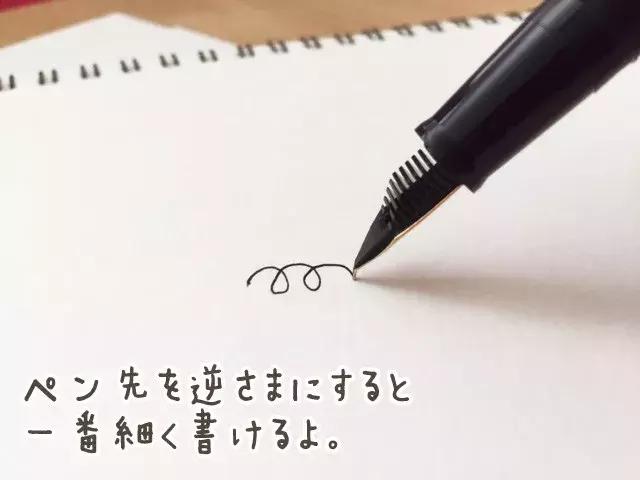 ペン先を逆さまにすると
一番細く書けるよ。